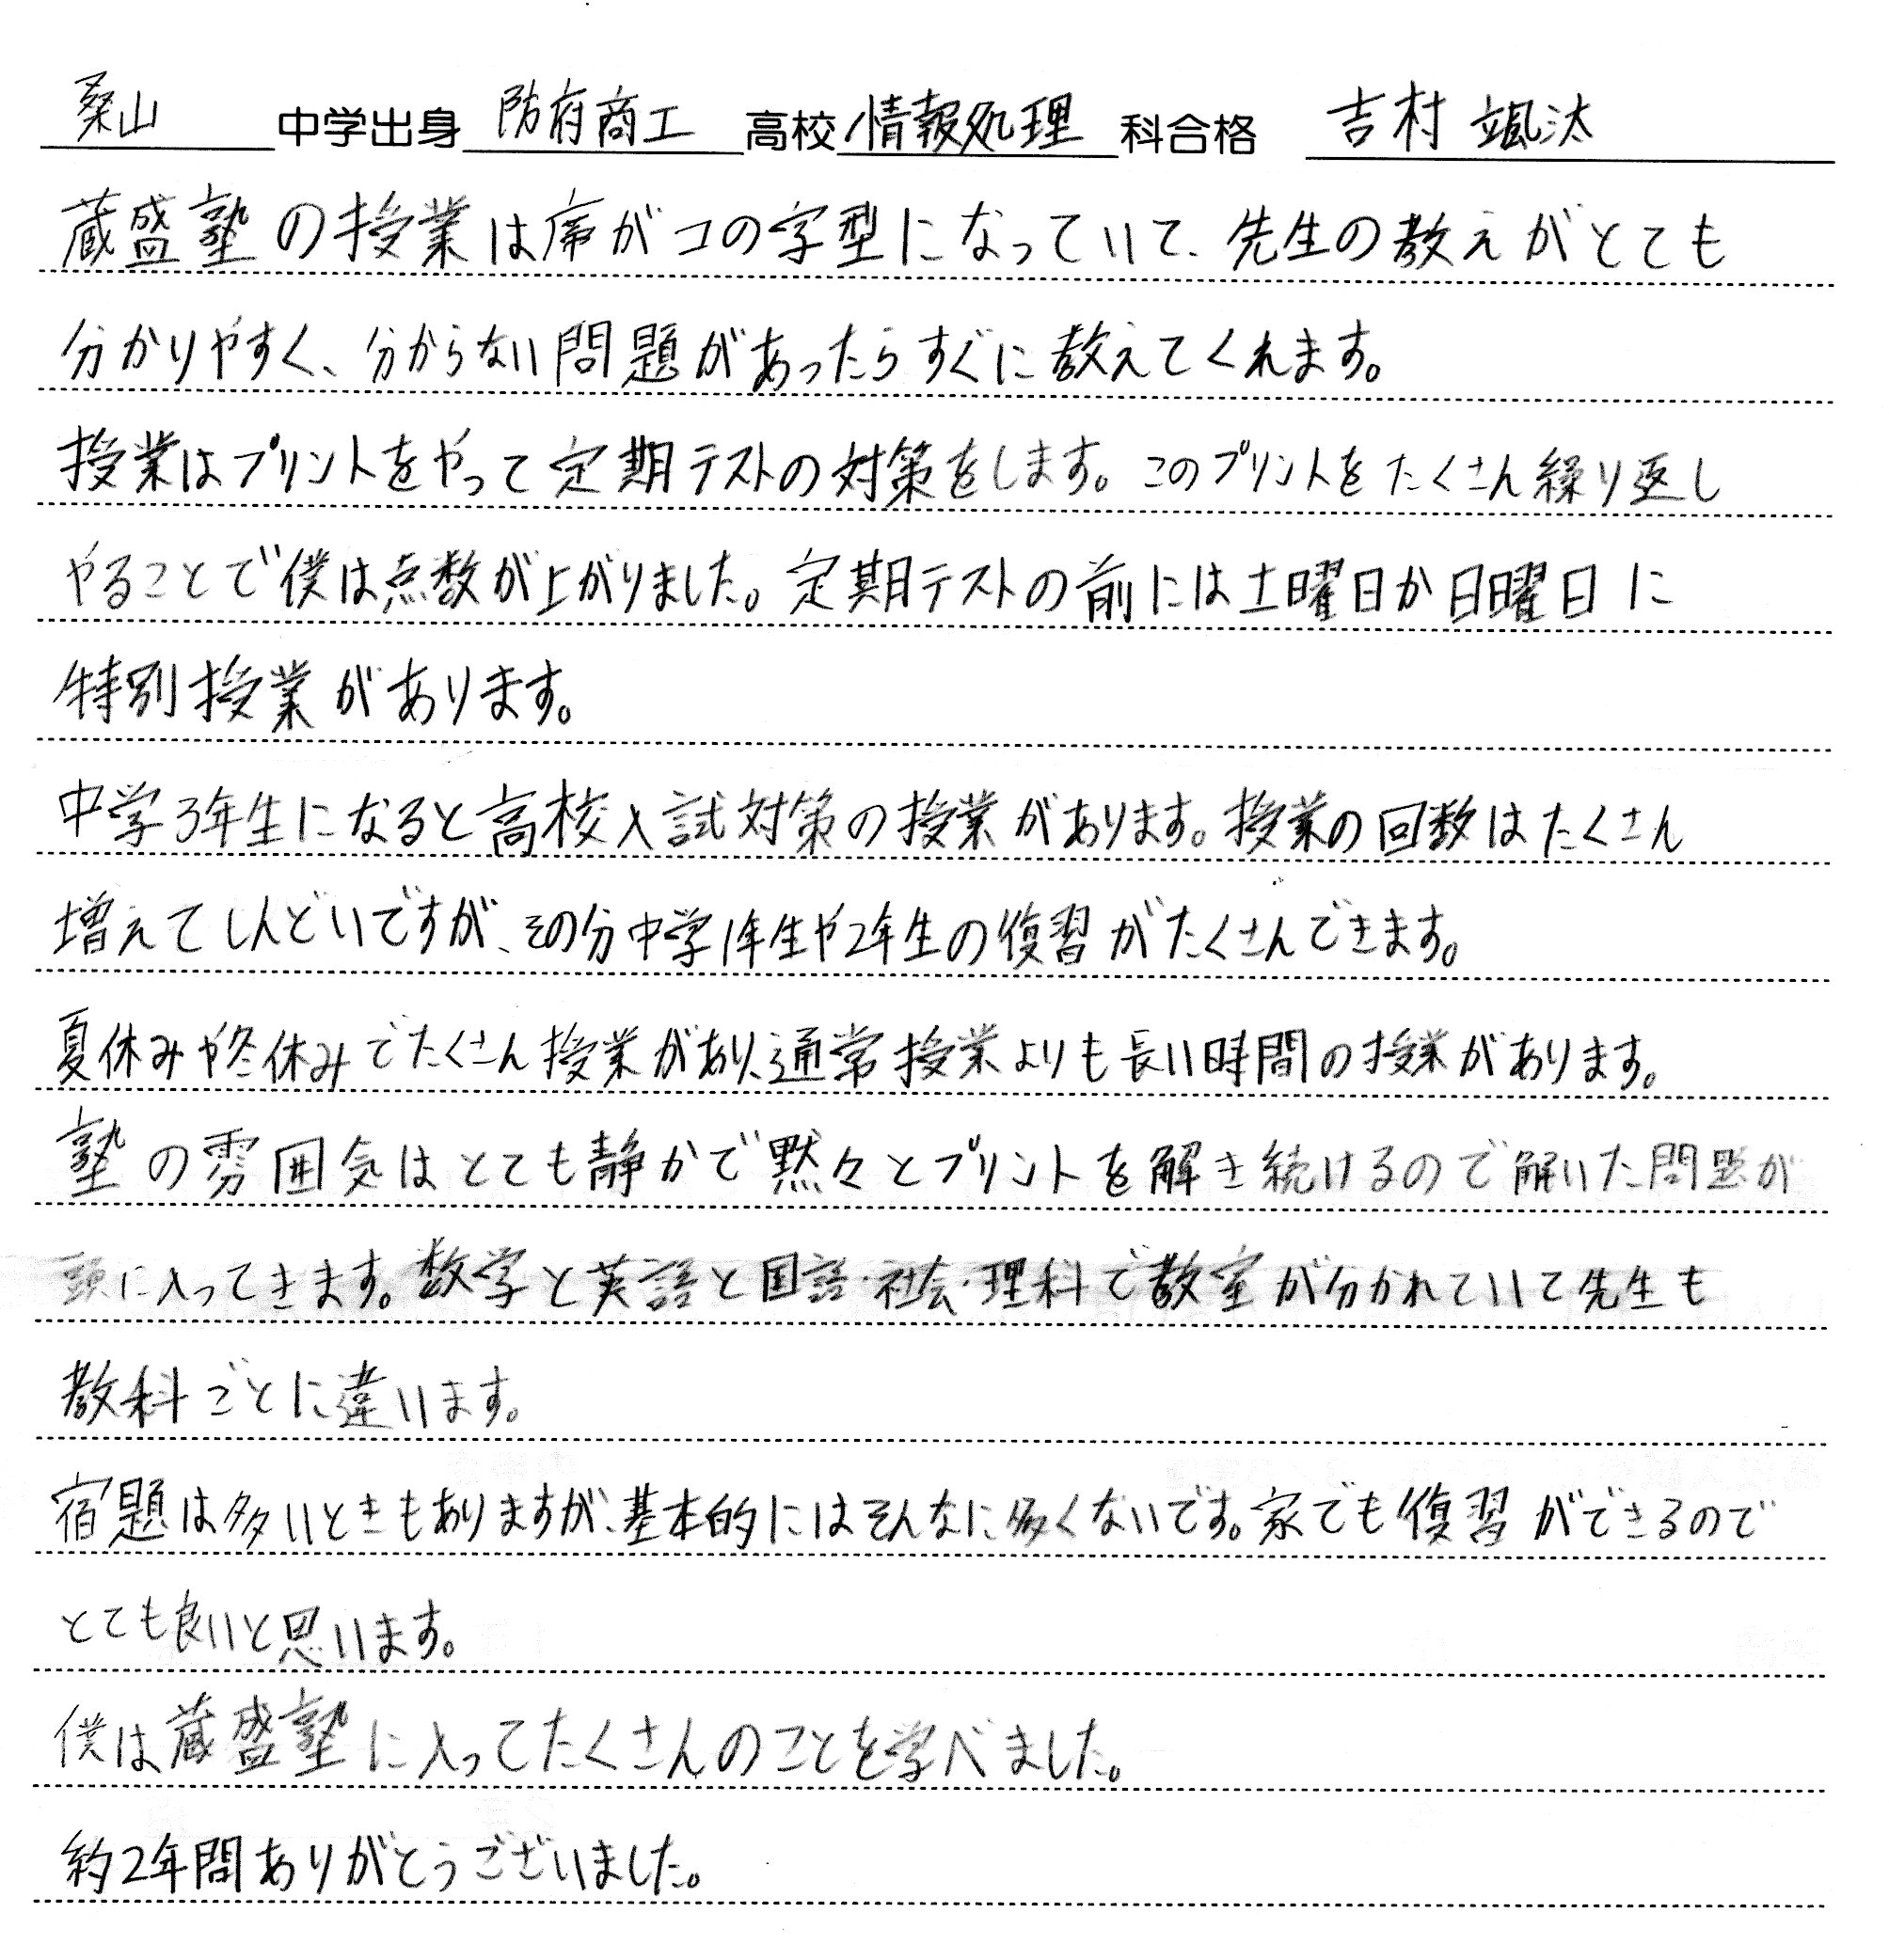 桑山中学出身 防府商工高校 情報処理科合格 吉村 颯汰
蔵盛塾の授業は席がコの字型になっていて、先生の教えがとても
分かりやすく、分からない問題があったらすぐに教えてくれます。
授業はプリントをやって定期テストの対策をします。このプリントをたくさん繰り返し
やることで僕は点数が上がりました。定期テストの前には土曜日か日曜日に
特別授業があります。
中学3年生になると高校入試対策の授業があります。授業の回数はたくさん
増えてしんどいですが、その分中学1年生や2年生の復習がたくさんできます。
夏休みや冬休みでたくさん授業があり、通常授業よりも長い時間の授業があります。
塾の雰囲気はとても静かで黙々とプリントを解き続けるので解いた問題が
頭に入ってきます。数学と英語と国語・社会・理科で教室が分かれていて先生も
教科ごとに違います。
宿題は多いときもありますが、基本的にはそんなに多くないです。家でも復習ができるので
とても良いと思います。
僕は蔵盛塾に入ってたくさんのことを学べました。
約2年間ありがとうございました。